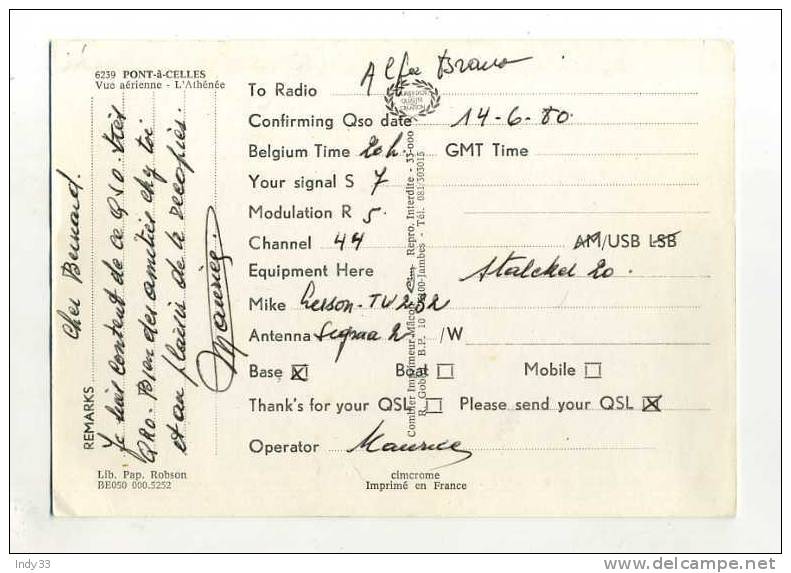 6239 PONT-à-CELLES
Vue aérienne - L'Athénée
To Radio Alfa Bravo
Confirming Qso date 14-6-80.
Belgium Time 20h. GMT Time
Your signal S 7
Modulation R 5.
Channel 44 AM/USB LSB
Equipment Here Stalcker 20.
Mike Lesson-TW232
Antenna 2 /W
Base ☒ Boat ☐ Mobile ☐
Thank's for your QSL ☐ Please send your QSL ☒
Operator Maurice
REMARKS Cher Bernard.
Je suis content de ce QSO. très
QRO. Bien des amitiés chez toi
et au plaisir de te recopier.
Maurice
Combier Imprimeur Mâcon Cim Repro. Interdite - 33-000
R. B.P. 10 100-Jambes - Tél. 081/303015
Lib. Pap. Robson
BE050 000.5252
cimcrome
Imprimé en France
Indy33
delcampe.net